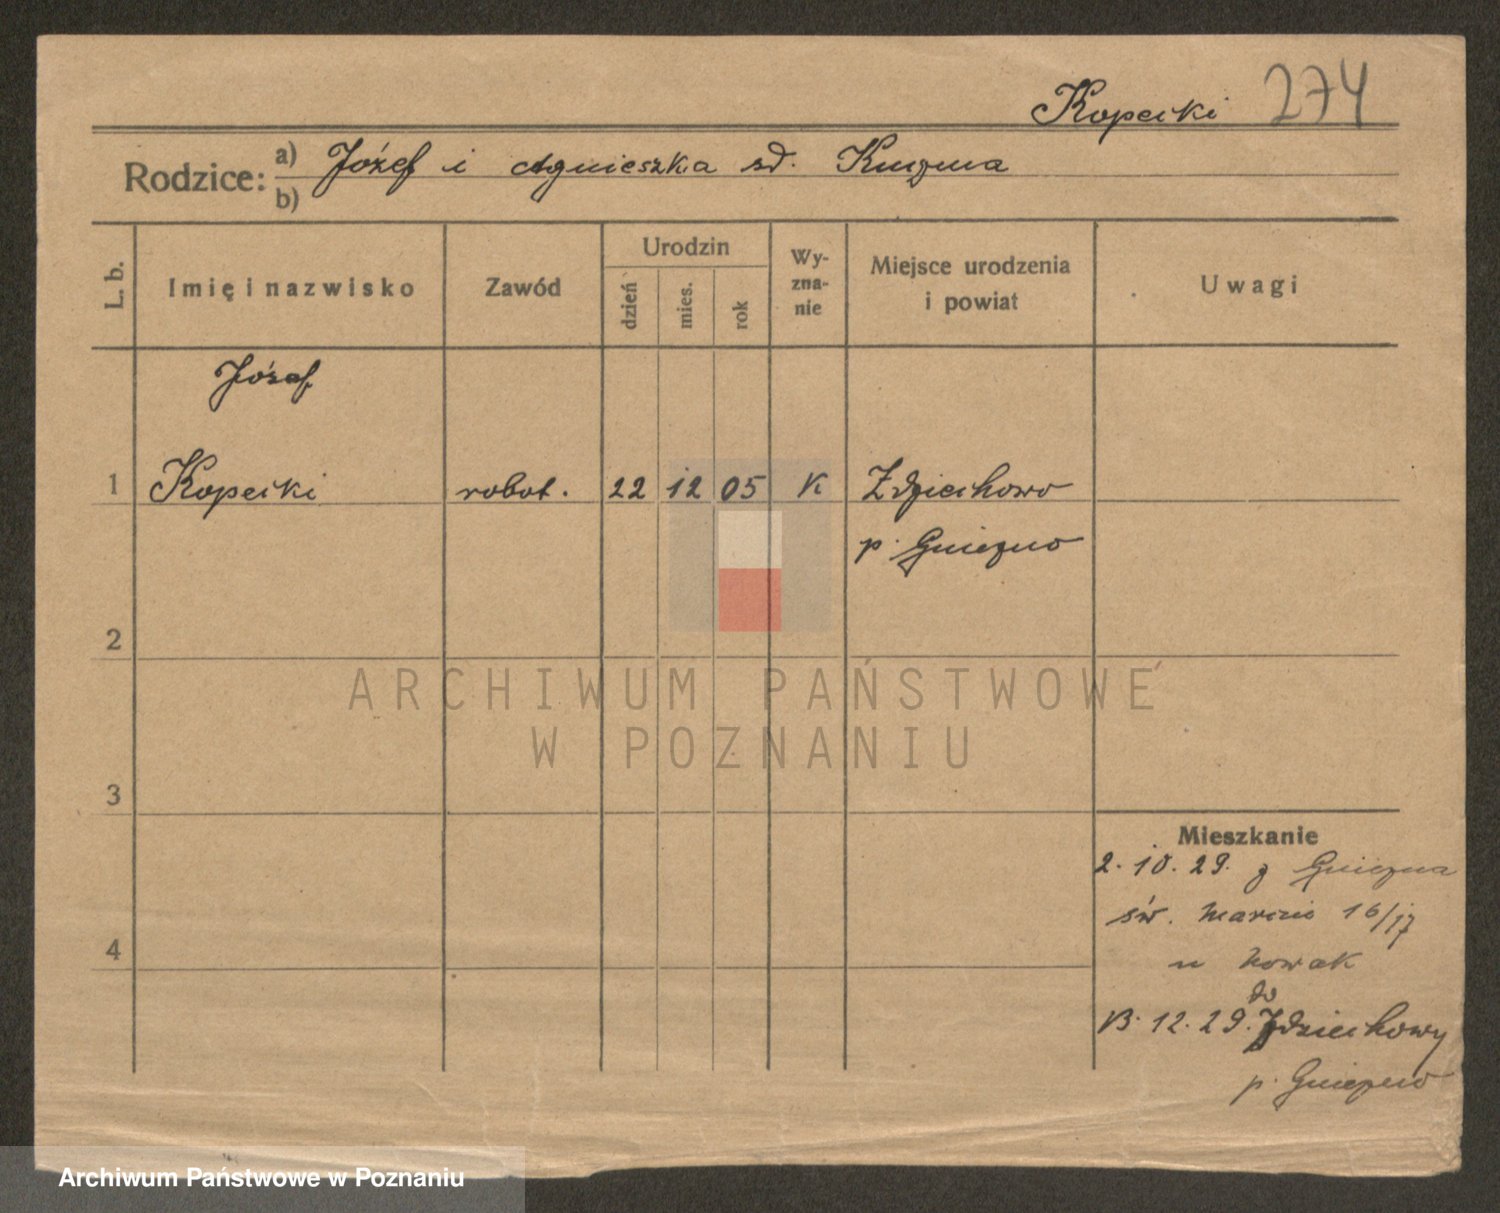 Kopecki 274
Rodzice: a) Józef i Agnieszka zd.
b)
L. b. Imię i nazwisko Zawód Urodzin dzień mies. rok Wyznanie Miejsce urodzenia i powiat Uwagi
Józef
1 Kopecki robot. 22 12 05 K Zdziechowo
p. Gniezno
2
3
4
Mieszkanie
2. 10. 29. z Gniezna
św. Marcin 16/17
u Nowak
do
13. 12. 29. Zdziechowy
p. Gniezno
ARCHIWUM PAŃSTWOWE
W POZNANIU
Archiwum Państwowe w Poznaniu